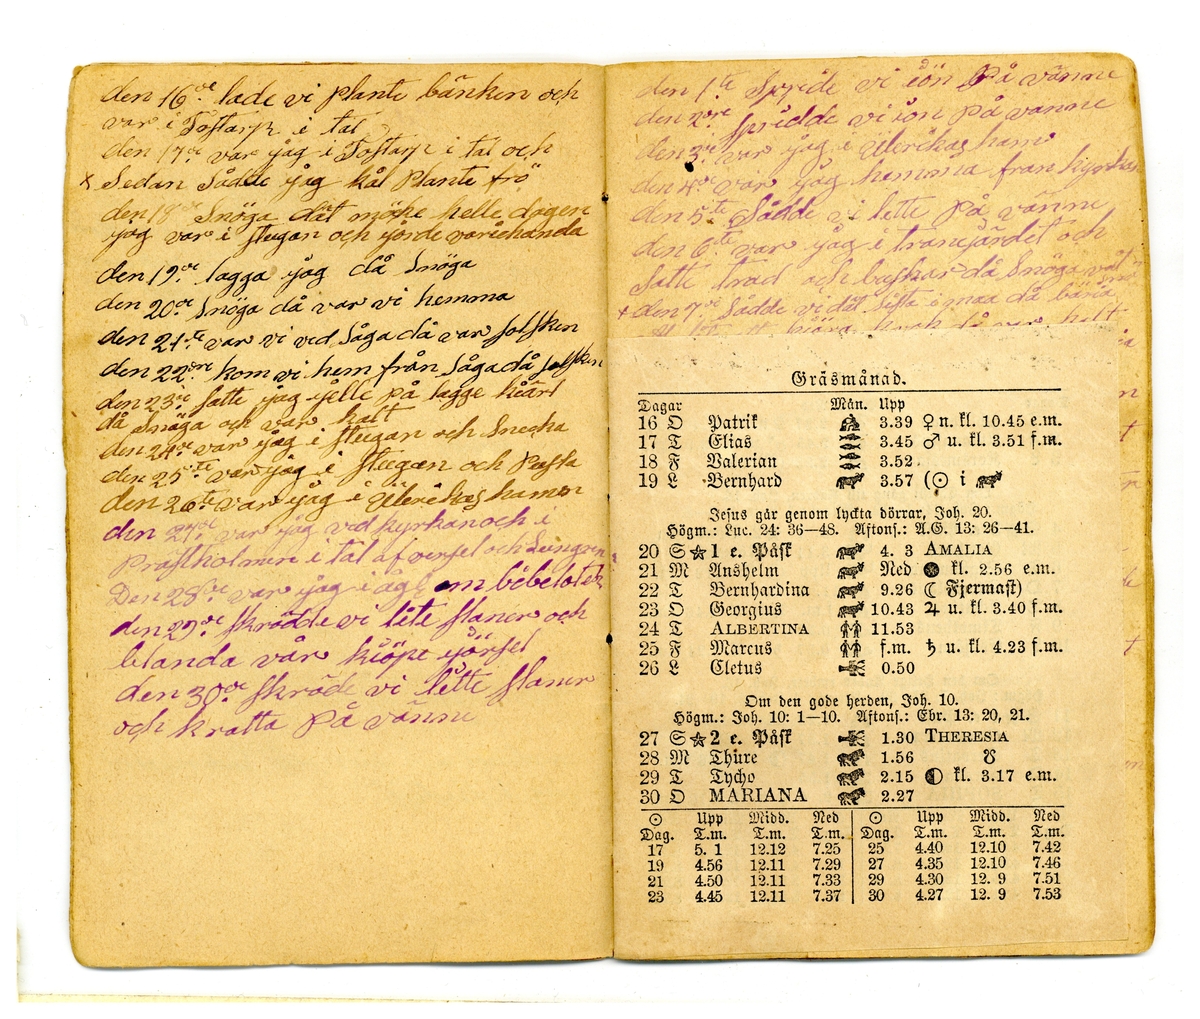 den 16de lade vi plante bänken och
var i Toftarp i tal
den 17de var jag i Toftarp i tal och
x Sedan Sådde jag kål Plante frö
den 18de Snöga dät möke helle dagen
jag var i stugan och jorde variehanda
den 19de lagga jag då Snöga
den 20de Snöga då var vi hemma
den 21te var vi ved Såga då var solsken
den 22dre kom vi hem från Såga då solsken
den 23de satte jag jelle på lagge kiärl
då Snöga och var kalt
den 24de var jag i stugan och Snecka
den 25te var jag i stugan och
den 26te var jag i Ulerikas hamn
den 27de var jag ved kyrkan och i
Prästholmen i tal af och Lungren
Den 28de var jag i om bebelotek
den 29de skrädde vi lite slaner och
blanda vår kiöpe jörsel
den 30de skräde vi litte slaner
och kratta På vänne
den 1te Spride vi iön På vänne
den 2dre Spridde vi iön på vänne
den 3de var jag i Ulerikas hamn
den 4de var jag hemma fran kyrkan
den 5te Sådde vi lette På vänne
den 6te var jag i tranejärdet och
Satte träd och buskar då Snöga
x den 7de Sådde vi dät sista i maa då
Gräsmånad.
Dagar Mån. Upp
16 O Patrik 3.39 ♀ n. kl. 10.45 e.m.
17 T Elias 3.45 ♂ u. kl. 3.51 f.m.
18 F Valerian 3.52
19 L Bernhard 3.57 (☉ i ♉
Jesus går genom lyckta dörrar, Joh. 20.
Högm.: Luc. 24: 36—48. Aftons.: A.G. 13: 26—41.
20 S ☆ 1 e. Påsk 4. 3 AMALIA
21 M Anshelm Ned ● kl. 2.56 e.m.
22 T Bernhardina 9.26 (☾ Fjermast)
23 O Georgius 10.43 ♃ u. kl. 3.40 f.m.
24 T ALBERTINA 11.53
25 F Marcus f.m. ♄ u. kl. 4.23 f.m.
26 L Cletus 0.50
Om den gode herden, Joh. 10.
Högm.: Joh. 10: 1—10. Aftons.: Ebr. 13: 20, 21.
27 S ☆ 2 e. Påsk 1.30 THERESIA
28 M Thure 1.56 ☋
29 T Tycho 2.15 ◐ kl. 3.17 e.m.
30 O MARIANA 2.27
☉ Upp Midd. Ned ☉ Upp Midd. Ned
Dag. T.m. T.m. T.m. Dag. T.m. T.m. T.m.
17 5. 1 12.12 7.25 25 4.40 12.10 7.42
19 4.56 12.11 7.29 27 4.35 12.10 7.46
21 4.50 12.11 7.33 29 4.30 12. 9 7.51
23 4.45 12.11 7.37 30 4.27 12. 9 7.53